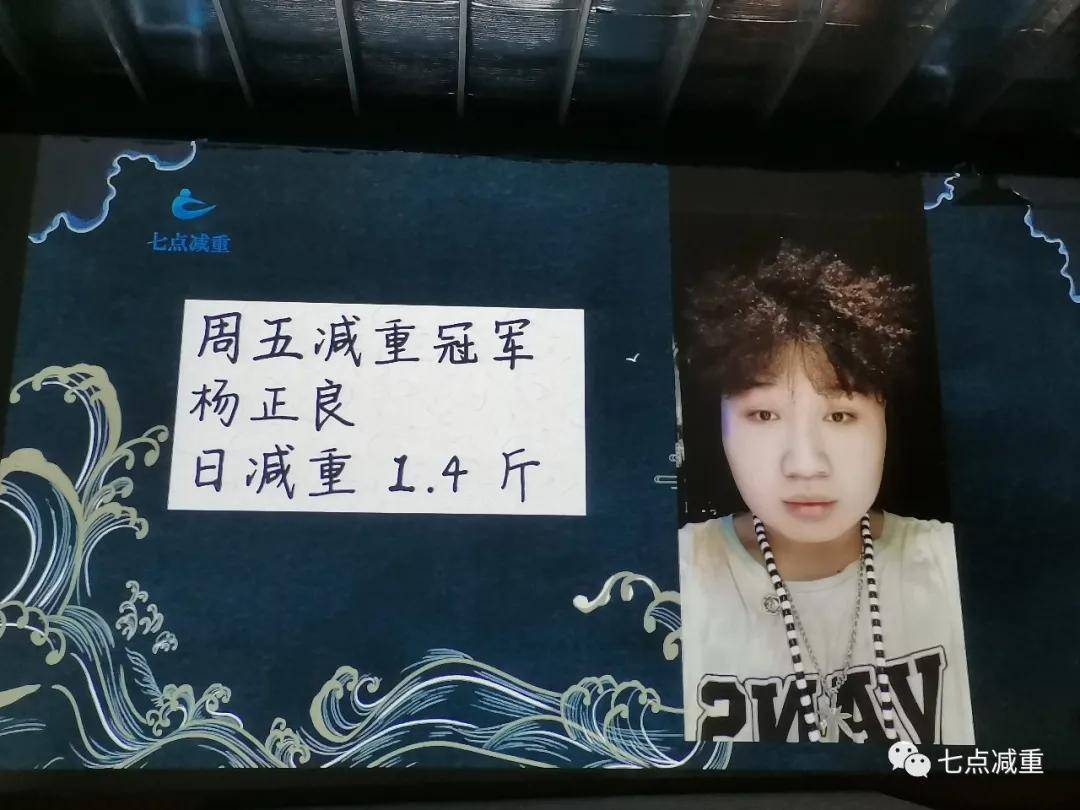 七点减重
周五减重冠军
杨正良
日减重 1.4 斤
VANS
七点减重